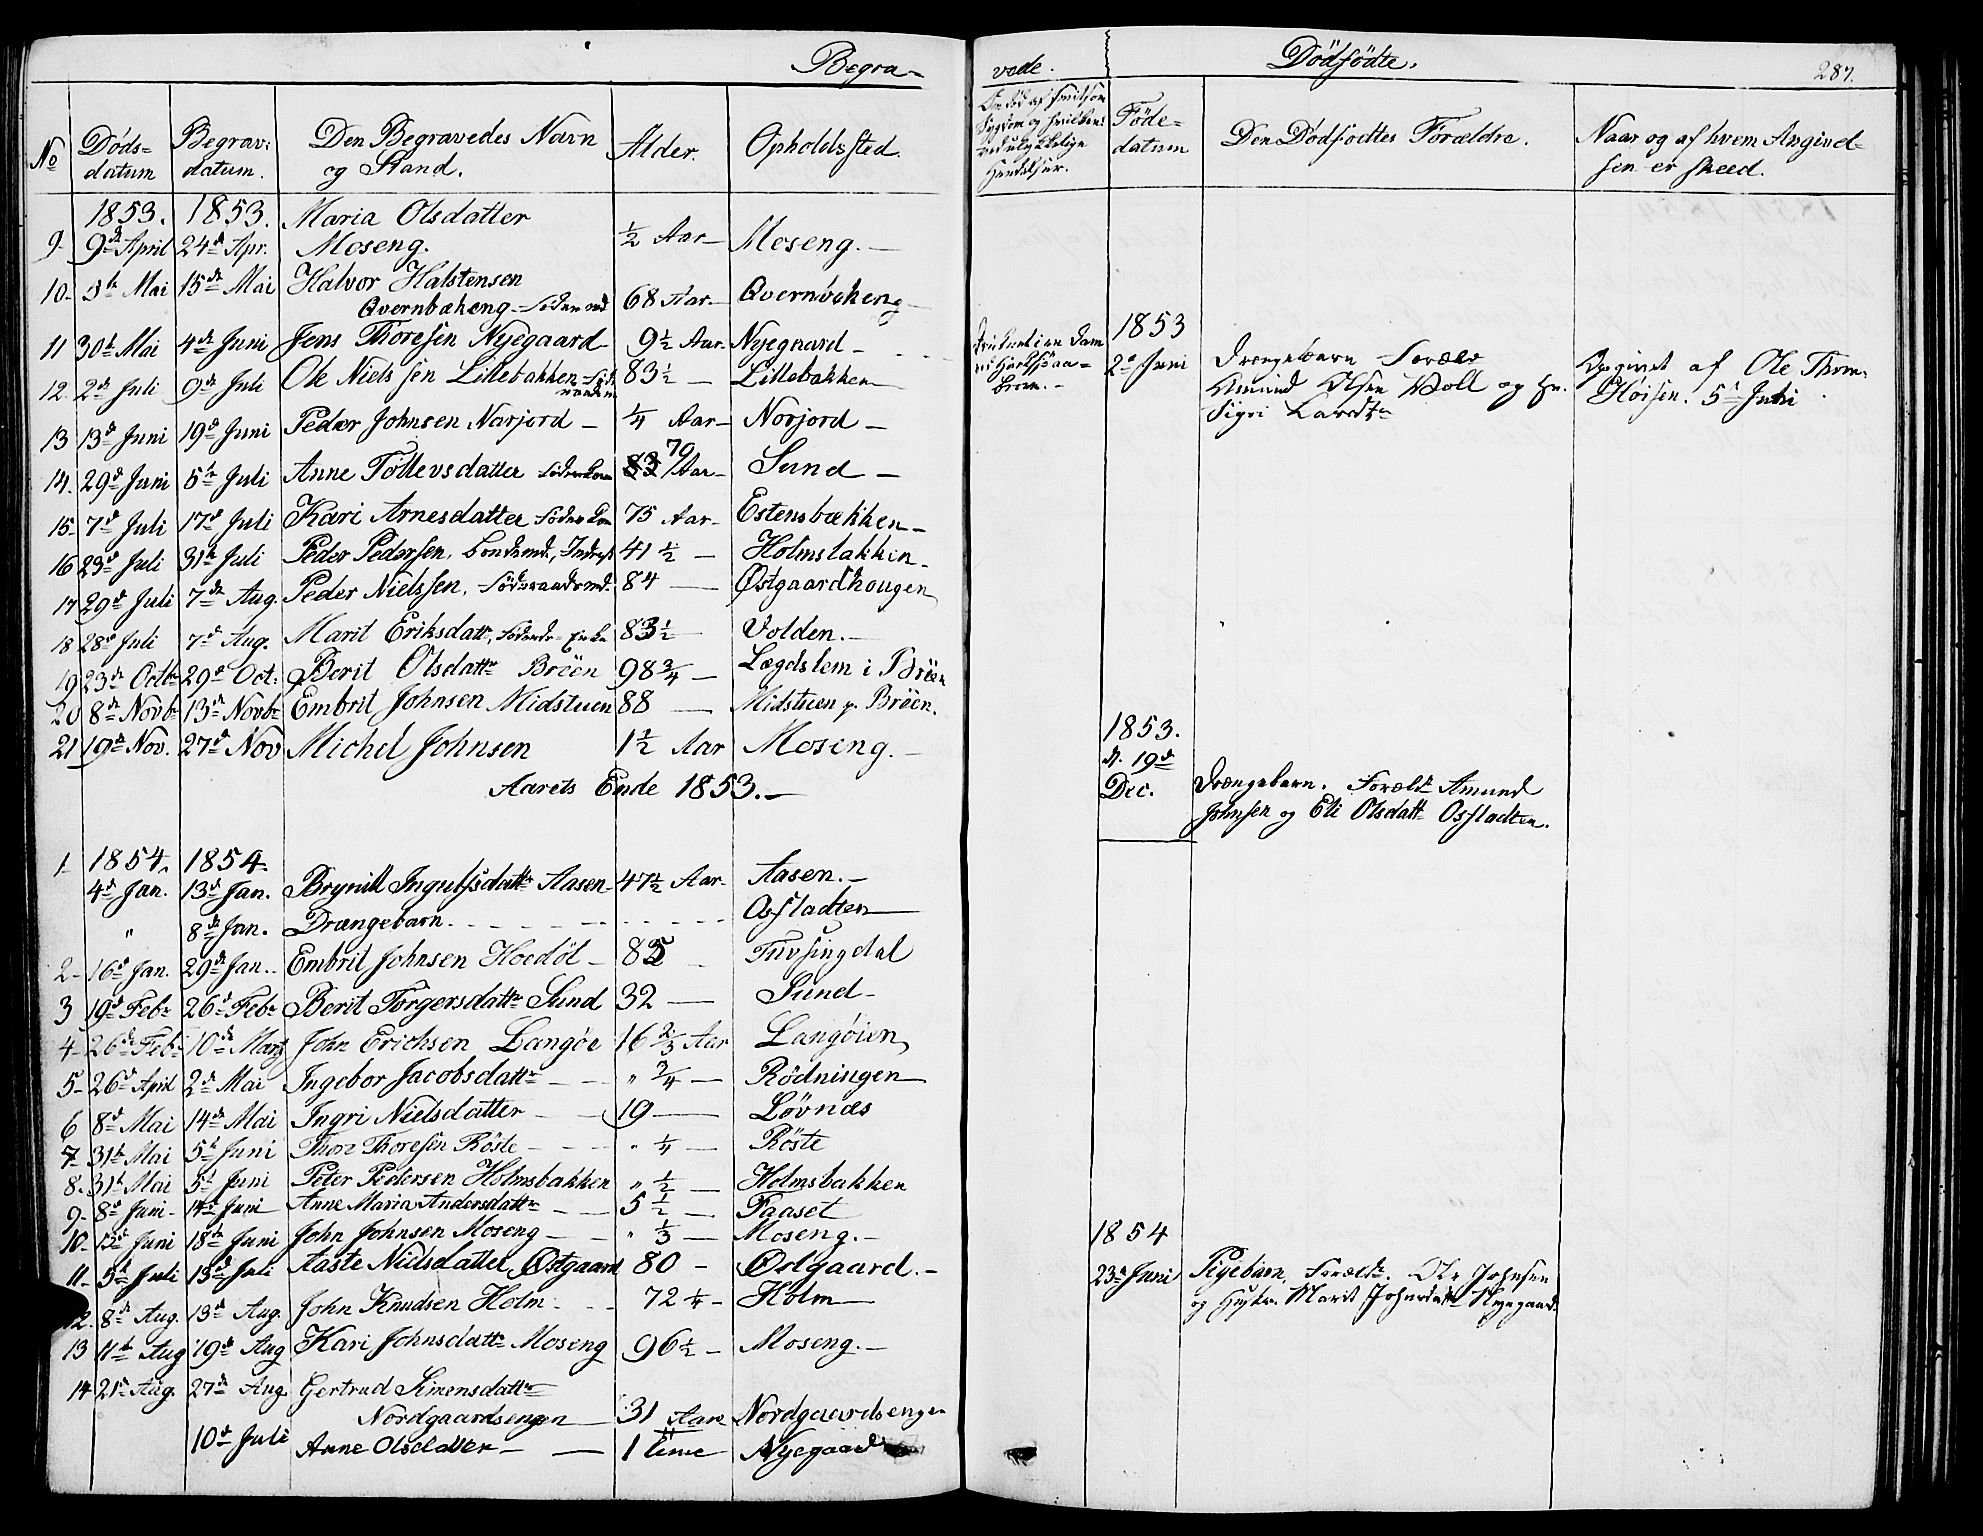 Begra-
No Döds-datum Begrav: datum. Den Begravedes Navn og Stand. Alder. Opholdssted.
1853. 1853. Maria Olsdatter
9- 9de April 24de Apr. Moseng. ½ Aar- Moseng.-
10- Mai 15de Mai Halvor Halstensen
Qvernbækeng- 68 Aar- Qvernbækeng-
11 30te Mai 4de Juni Jens Thoresen Nyegaard 9½ Aar- Nyegaard-
12. 2de Juli 9de Juli Ole Nielssen Lillebakken- 83½ - Lillebakken
13 13de Juni 19de Juni Peder Johnsen Narjord - ¼ Aar- Norjord -
14. 29de Juni 5te Juli Anne Tollevsdatter 83 70 Aar- Sund -
15- 7de Juli 17de Juli Kari Arnesdatter 75 Aar- Estensbækken-
16 23de Juli 31te Juli Peder Pedersen. 41½ - Holmsbakken-
17 29de Juli 7de Aug. Peder Nielssen. 84 - Østgaardhougen
18 28de Juli 7de Aug. Marit Eriksdattr. 83½ - Volden.-
19 23de Octbr 29de Oct: Berit Olsdattr Bröen 98¾ - Lægdslem i Bröen
20 8de Novbr 13de Novbr Embrit Johnsen Midstuen 88 - Midstuen p. Bröen.
21 19de Nov. 27de Nov Michel Johnsen 1½ Aar Moseng.-
Aarets Ende 1853.-
1- 1854. 1854
4de Jan. 13de Jan. Brynild Ingulfsdattr Aasen- 47½ Aar- Aasen.-
" 8de Jan. Drængebarn. Osfladten
2- 16de Jan. 29de Jan.. Embrit Johnsen Hoedöl - 85 - Tuvsingdal
3 19de Febr 26de Febr Berit Torgersdattr Sund 32 - Sund-
4- 26de Feb. 10de Marz John Erichsen Langöe 16⅔ Aar Langöien
5- 26de April 2de Mai Ingebor Jacobsdattr " ¾ - Rödningen
6 8de Mai 14de Mai Ingri Nielsdatter 19 - Lövnæs
7- 31te Mai 5te Juni Thore Thoresen Röste " ¼ - Röste
8- 31te Mai 5te Juni Peter Pedersen Holmsbakken " ½ - Holmsbakken
9- 8de Juni- 14de Juni Anne Maria Andersdattr 5½ - Faaset
10- 13de Juni 18de Juni John Johnsen Moseng " ⅓ - Moseng.-
11- 5te Juli 13de Juli Aaste Nielsdatter, Østgaard 80 - Østgaard.-
12. 8de Aug. 13de Aug. John Knudsen Holm 72¼ - Holm
13 11te Aug 19de Aug Kari Johnsdattr Moseng 96½ - Moseng.-
14 21de Aug. 27de Aug. Gertrud Simensdattr
Nordgaardsengen 31 Aar Nordgaardsengen
10de Juli Anne Olsdatter - 1 Nyegaard
vede. Dödfödte. 287.
Föde-datum Den Dödfodtes Forældre. Naar og af hvem Angivel-sen er skeed.
1853
2de Juni Drængebarn Amund Olsen Moll og
Sigri af Ole
5te Juni
1853.
d. 19de
Dec. Drængebarn. Forældr Amund
Johnsen og Eli Olsdattr Osfladten.
1854
23de Juni Pigebarn. Forældr. Ole Johnsen
og Marit Johnsdattr Nyegaard.